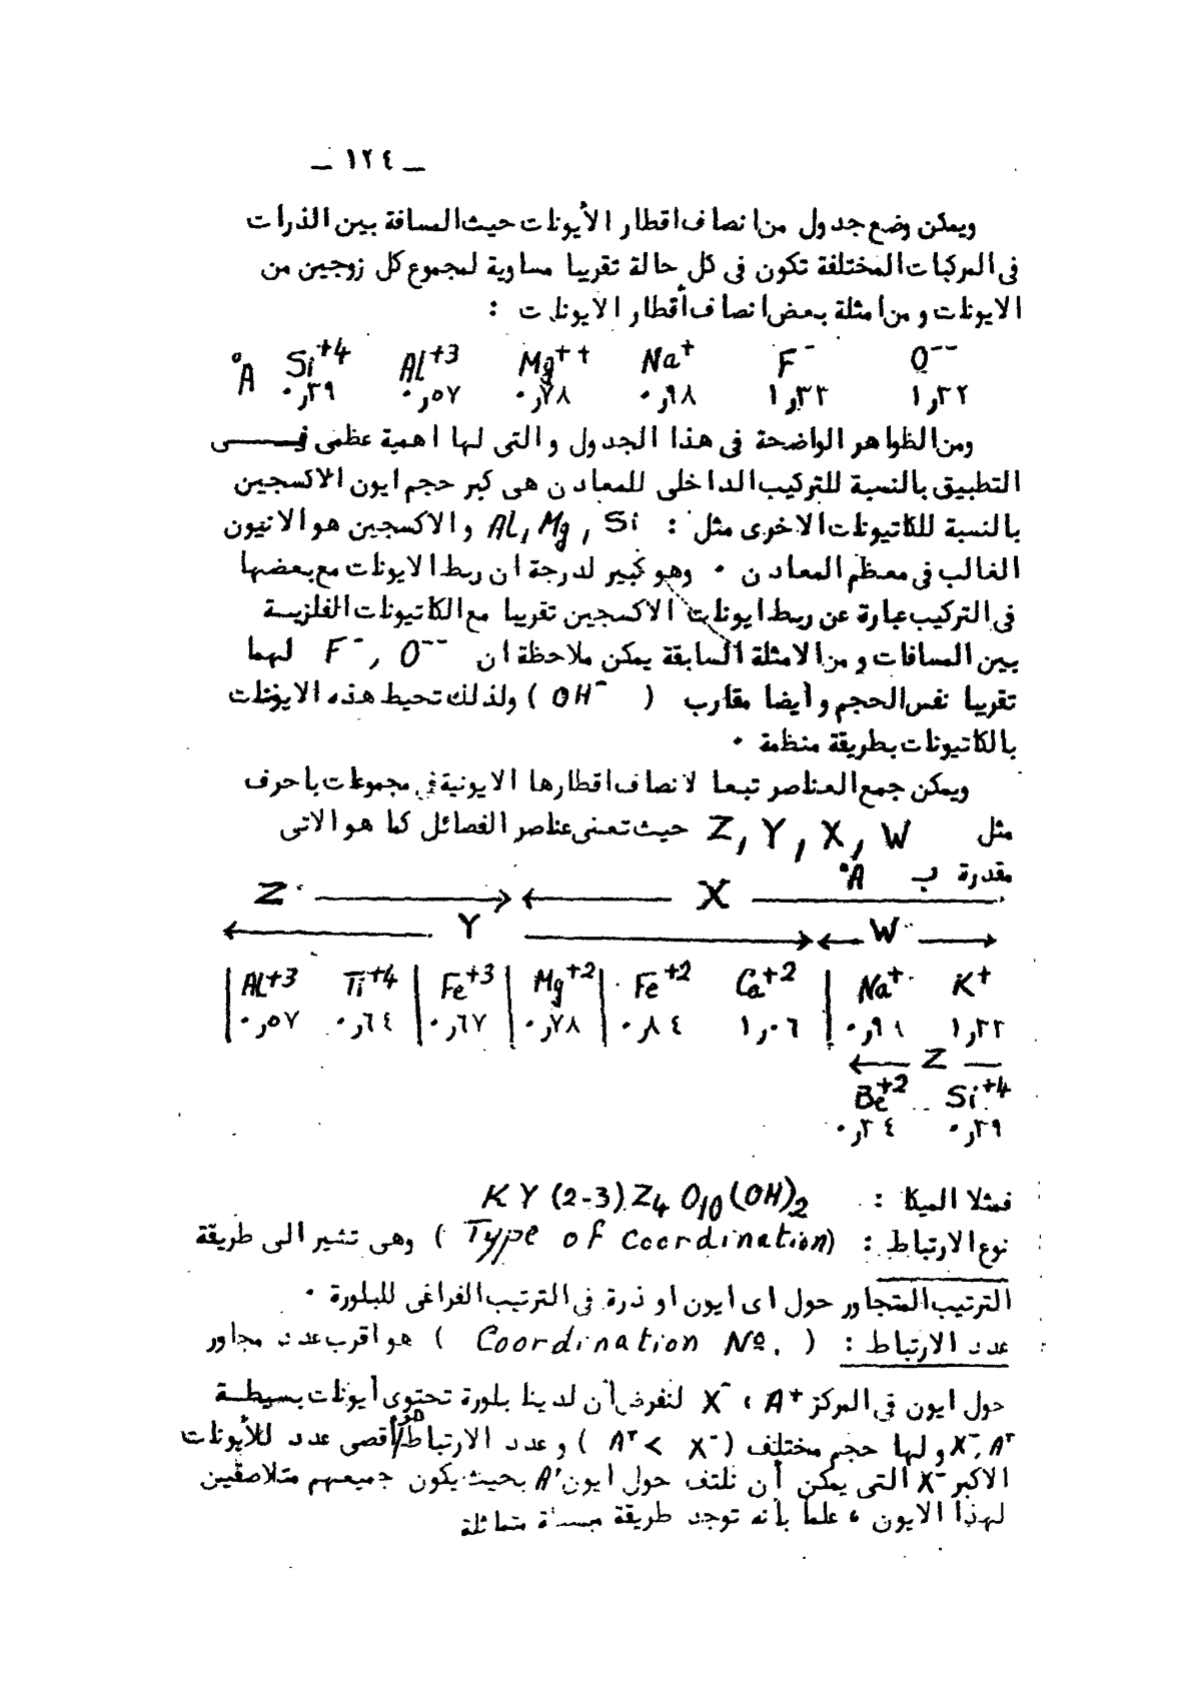 ـ ١٢٤ ـ
ويمكن وضع جدول من انصاف اقطار الأيونات حيث المسافة بين الذرات
فى المركبات المختلفة تكون فى كل حالة تقريبا مساوية لمجموع كل زوجين من
الايونات ومن امثلة بعض انصاف أقطار الايونات :
O-- F- Na+ Mg++ Al+3 Si+4 °A
١٫٣٢ ١٫٣٣ ٠٫٩٨ ٠٫٧٨ ٠٫٥٧ ٠٫٣٩
ومن الظواهر الواضحة فى هذا الجدول والتى لها اهمية عظمى فـــى
التطبيق بالنسبة للتركيب الداخلى للمعادن هى كبر حجم ايون الاكسجين
بالنسبة للكاتيونات الاخرى مثل : Al, Mg, Si والاكسجين هو الانيون
الغالب فى معظم المعادن ٠ وهو كبير لدرجة ان ربط الايونات مع بعضها
فى التركيب عبارة عن ربط ايونات الاكسجين تقريبا مع الكاتيونات الفلزيـة
بين المسافات ومن الامثلة السابقة يمكن ملاحظة ان F-, O-- لهما
تقريبا نفس الحجم وأيضا مقارب ( OH- ) ولذلك تحيط هذه الايونات
بالكاتيونات بطريقة منظمة ٠
ويمكن جمع العناصر تبعا لانصاف اقطارها الايونية فى مجموعات باحرف
مثل Z, Y, X, W حيث تعنى عناصر الفصائل كما هو الاتى
مقدرة ب °A
Z ⟶ ⟵ X ⟶
⟵ Y ⟶ ⟵ W ⟶
|Al+3 Ti+4 | Fe+3 | Mg+2 | Fe+2 Ca+2 | Na+ K+
|٠٫٥٧ ٠٫٦٤ | ٠٫٦٧ | ٠٫٧٨ | ٠٫٨٤ ١٫٠٦ | ٠٫٩٨ ١٫٣٣
⟵ Z —
Be+2 Si+4
٠٫٣٤ ٠٫٣٩
فمثلا الميكا : K Y (2-3) Z4 O10 (OH)2
نوع الارتباط : (Type of Coordination ) وهى تشير الى طريقة
الترتيب المتجاور حول اى ايون او ذرة فى الترتيب الفراغى للبلورة ٠
عدد الارتباط : ( Coordination Nº. ) هو اقرب عدد مجاور
حول ايون فى المركز A+ ، X- لنفرض أن لدينا بلورة تحتوى أيونات بسيطـة
X-, A+ ولها حجم مختلف ( A+ < X- ) وعدد الارتباط هو أقصى عدد للأيونات
الاكبر X- التى يمكن أن تلتف حول ايون A+ بحيث يكون جميعهم متلاصقين
لهذا الايون ، علما بأنه توجد طريقة متماثلة